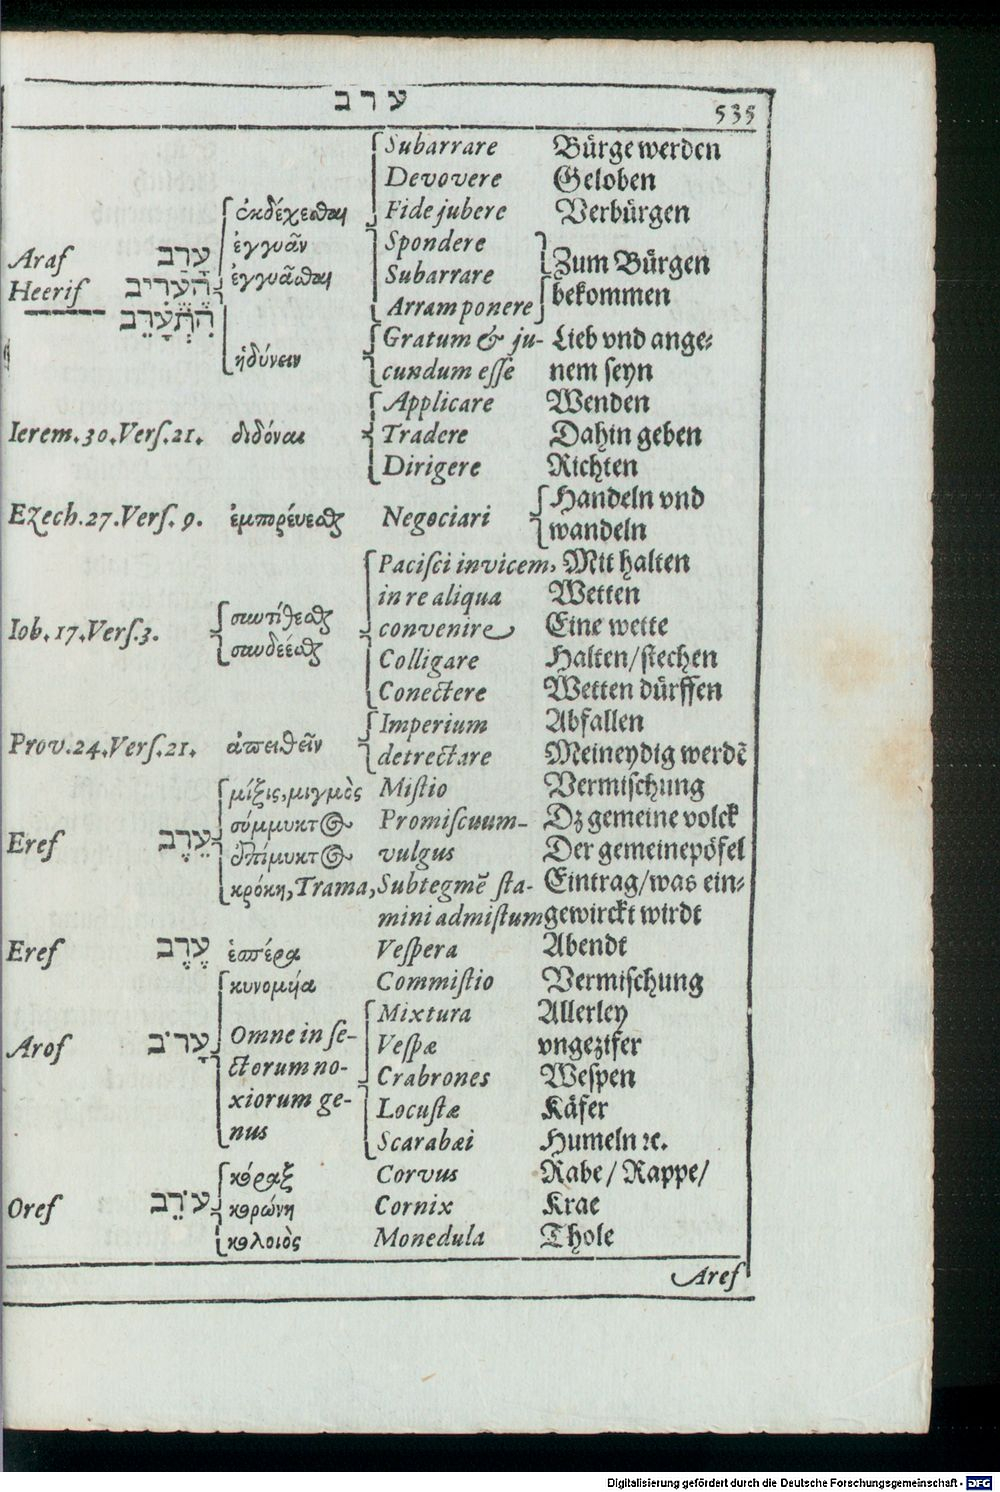 ערב
535
Subarrare Bürge werden
Devovere Geloben
ἐκδέχεσθαι Fide jubere Verbürgen
ἐγγυᾶν Spondere
Araf עָרַב Zum Bürgen
ἐγγυᾶσθαι Subarrare
Heerif הֶעֱרִיב bekommen
Arram ponere
הִתְעָרֵב
Gratum & ju- Lieb vnd ange⸗
ἡδύνειν cundum esse nem seyn
Applicare Wenden
Ierem. 30. Vers. 21. διδόναι Tradere Dahin geben
Dirigere Richten
Handeln vnd
Ezech. 27. Vers. 9. ἐμπορέυεσθαι Negociari
wandeln
Pacisci invicem, Mit halten
in re aliqua Wetten
Iob. 17. Vers. 3. convenire Eine wette
Colligare Halten/stechen
Conectere Wetten dürffen
Imperium Abfallen
Prov. 24. Vers. 21. ἀπειθεῖν detrectare Meineydig werdẽ
μίξις, μιγμὸς Mistio Vermischung
σύμμικτος Promiscuum- Dz gemeine volck
Eref עֵרֶב
ἐπίμυκτος vulgus Der gemeine pöfel
κρόκη, Trama, Subtegmẽ sta- Eintrag/was ein⸗
mini admistum gewirckt wirdt
Eref עֶרֶב ἑσπέρα Vespera Abendt
κυνομύια Commistio Vermischung
Mixtura Allerley
Arof עָרֹב Omne in se- Vespæ vngezifer
ctorum no- Crabrones Wespen
xiorum ge- Locustæ Käfer
nus Scarabæi Humeln ꝛc.
κόραξ Corvus Rabe/ Rappe/
Oref עֹרֵב κορώνη Cornix Krae
κολοιὸς Monedula Thole
Aref
Digitalisierung gefördert durch die Deutsche Forschungsgemeinschaft - DFG